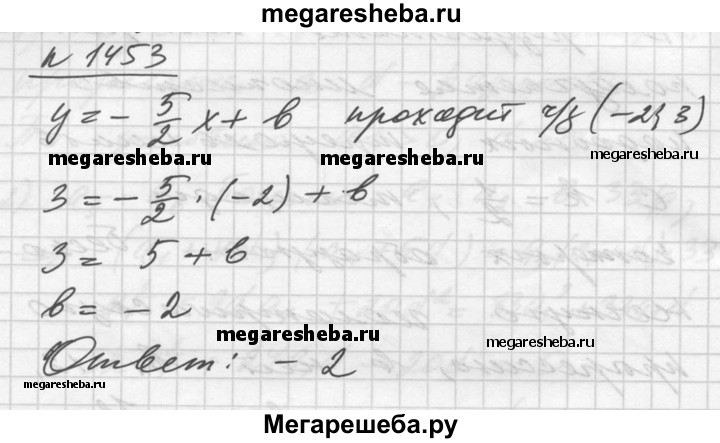 megaresheba.ru
n 1453
y = - 5/2 x + b проходит ч/з (-2; 3)
megaresheba.ru megaresheba.ru megaresheba.ru
3 = - 5/2 · (-2) + b
3 = 5 + b
b = - 2
megaresheba.ru megaresheba.ru
Ответ: - 2
megaresheba.ru
Мегарешеба.ру